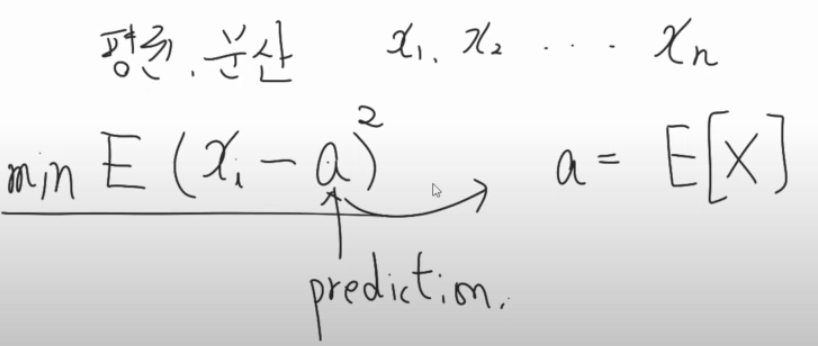 평균, 분산 x₁, x₂ ···· xₙ
min E (xᵢ - a)² a = E[X]
prediction.